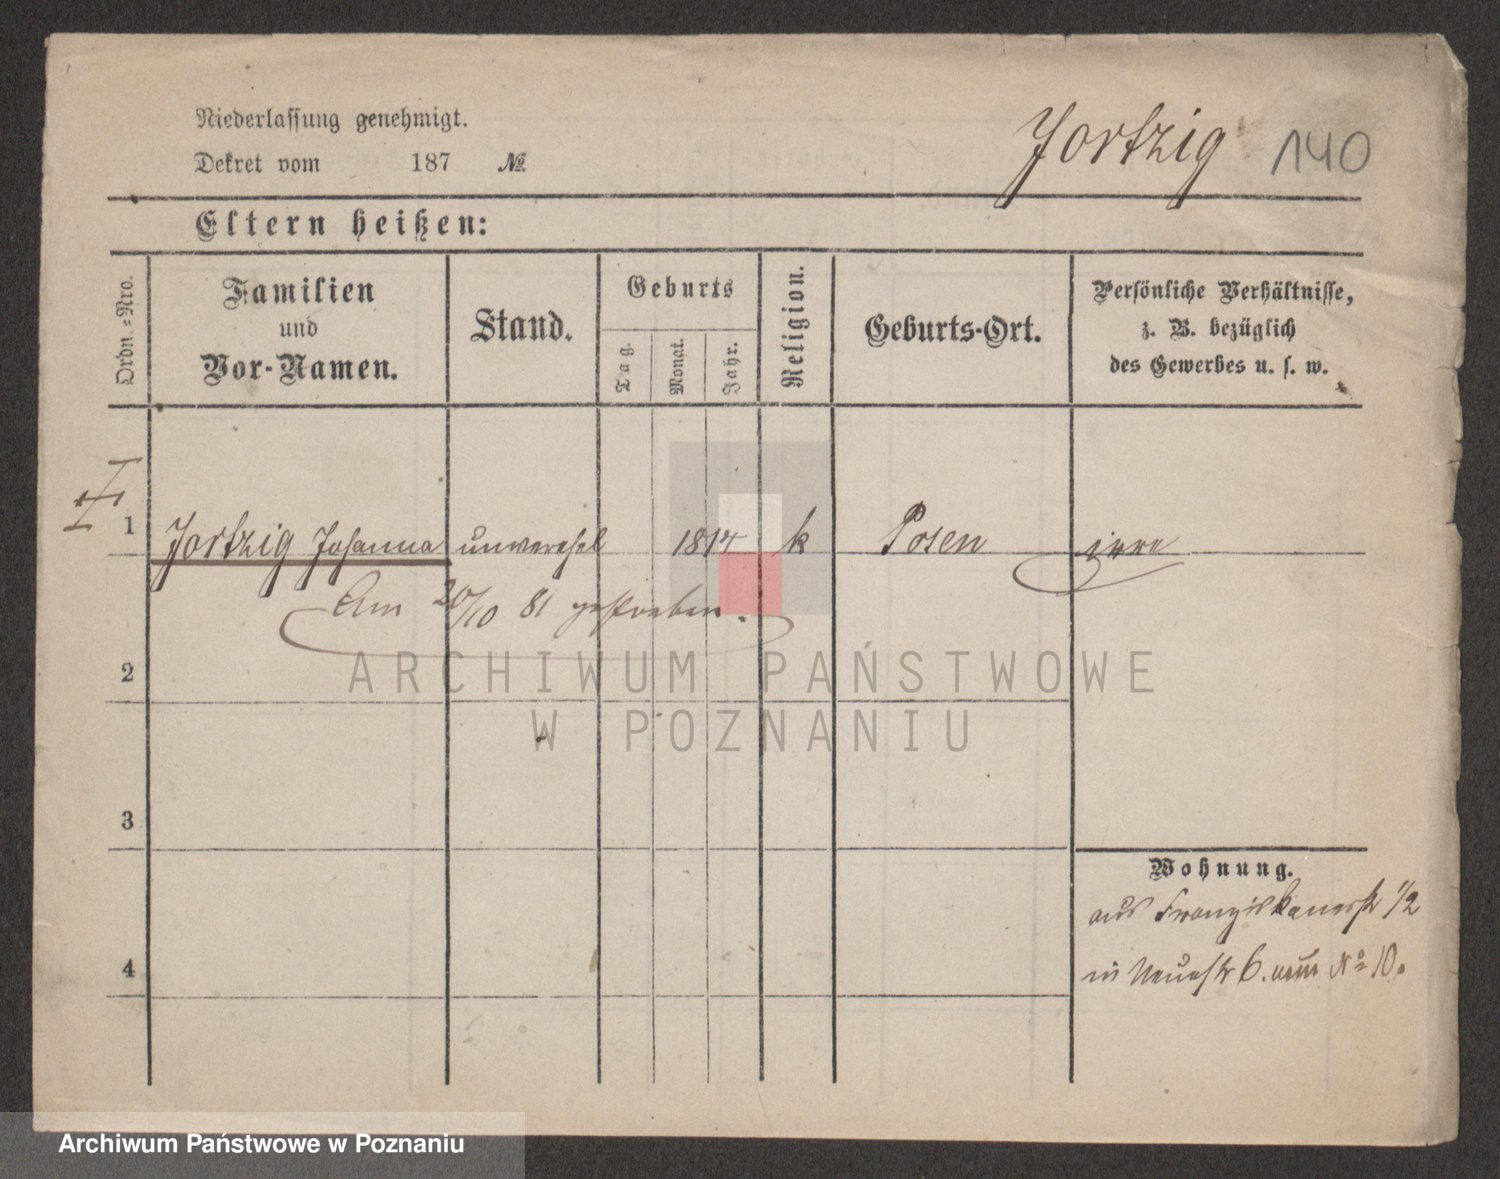 Niederlassung genehmigt.
Dekret vom 187 №
Jortzig 140
Eltern heißen:
Ordn.-Nro.
Familien
und
Vor-Namen.
Stand.
Geburts
Tag.
Monat.
Jahr.
Religion.
Geburts-Ort.
Persönliche Verhältnisse,
z. B. bezüglich
des Gewerbes u. s. w.
1 Jortzig Johanna unverehel 1814 k Posen irre
Am 20/10 81 gestorben.
2
3
4
Wohnung.
aus Franziskanerstr 1/2
in Neuestr 6. neue No 10.
ARCHIWUM PAŃSTWOWE
W POZNANIU
Archiwum Państwowe w Poznaniu